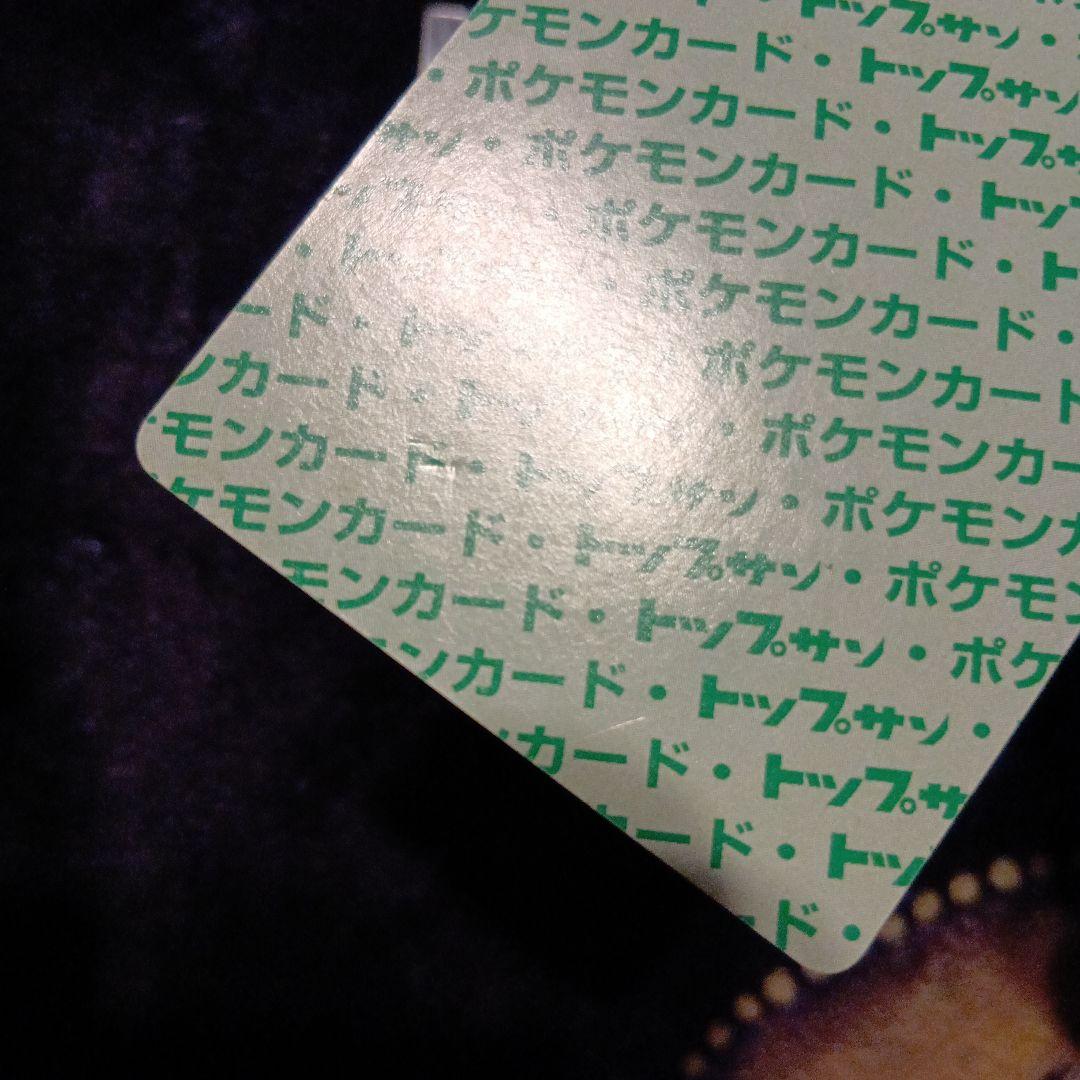 トップサン・
ケモンカード・トップサン
・ポケモンカード・トップサ
サン・ポケモンカード・トッ
ポケモンカード・ト
・ト ・ポケモンカード・
ード・ト ポケモンカード
ンカード・ト ・ポケモンカー
モンカード・トップサン・ポケモンカ
ケモンカード・トップサン・ポケモン
モンカード・トップサン・ポケ
ンカード・トップサン・
カード・トップサ
カード・トッ
ード・